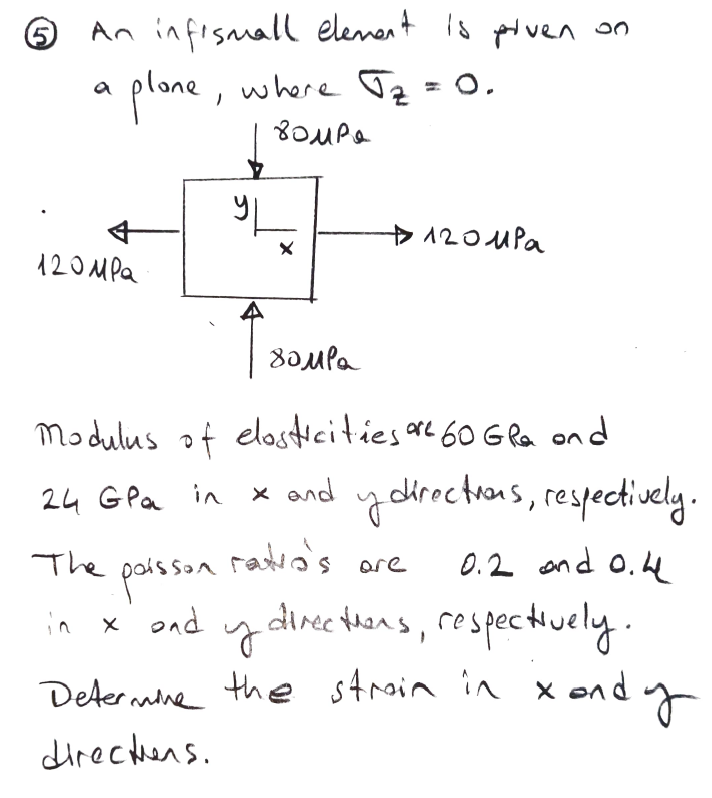 ⑤ An infismall element is given on
a plane, where σz = 0.
80 MPa
y
x
120 MPa
120 MPa
80 MPa
Modulus of elasticities are 60 GPa and
24 GPa in x and y directions, respectively.
The poisson ratio's are 0.2 and 0.4
in x and y directions, respectively.
Determine the strain in x and y
directions.